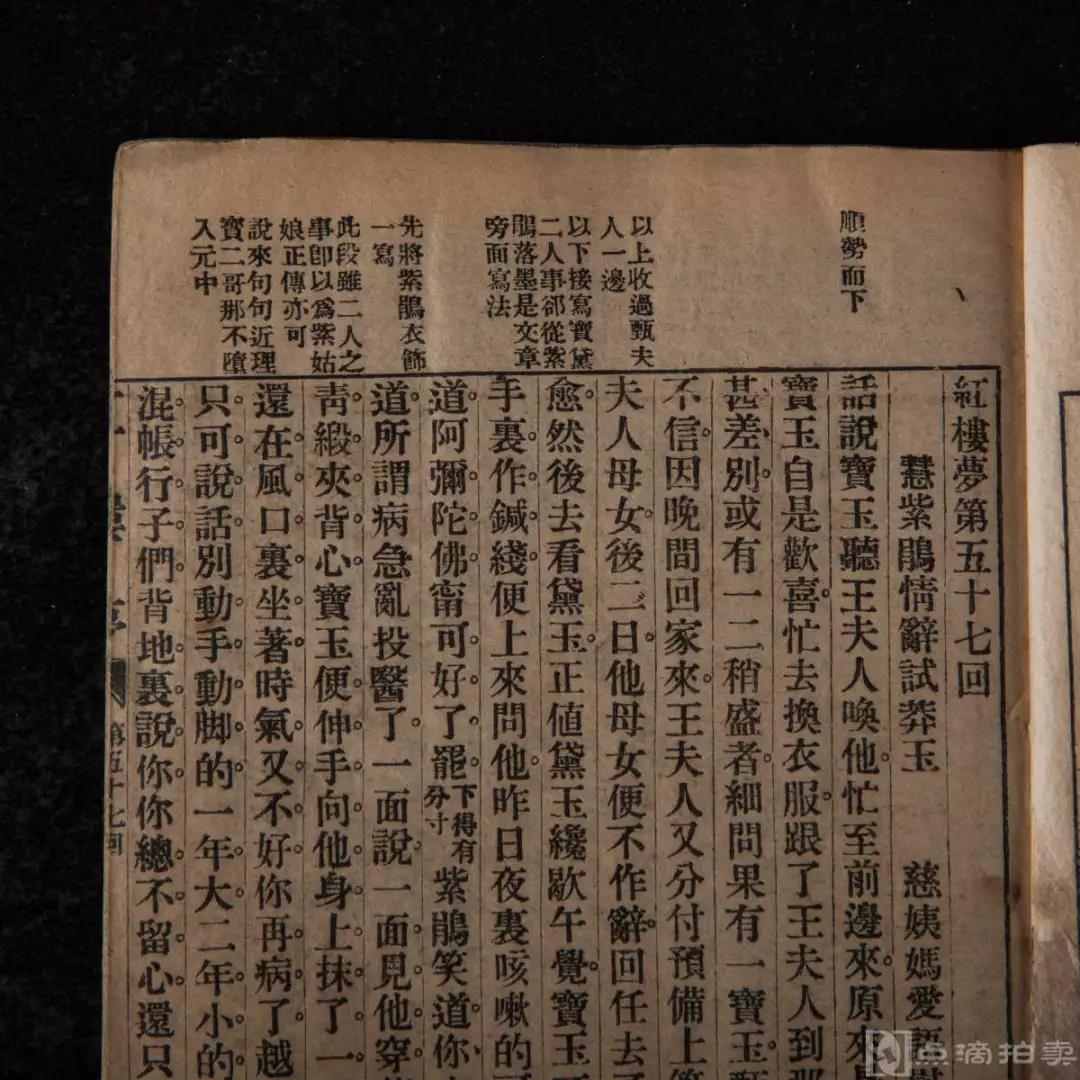 順勢而下
以上收過甄夫
人一邊
以下接寫寶黛
二人事郤從紫
鵑落墨是文章
旁面寫法
先將紫鵑衣飾
一寫
此段雖二人之
事卽以爲紫姑
娘正傳亦可
說來句句近理
寳二哥那不墮
入元中
紅樓夢第五十七回
慧紫鵑情辭試莽玉 慈姨媽愛語
話說寶玉聽王夫人喚他。忙至前邊來。原來
寶玉自是歡喜。忙去換衣服。跟了王夫人到那
甚差別。或有一二稍盛者。細問果有一寶玉。甄
不信。因晚間回家來。王夫人又分付預備上等
夫人母女。後二日。他母女便不作辭。回任去了
愈。然後去看黛玉。正値黛玉纔歇午覺。寶玉
手裏作鍼綫。便上來問他。昨日夜裏咳嗽的可
道。阿彌陀佛。甯可好了罷。下得有分寸紫鵑笑道。你
道。所謂病急亂投醫了。一面說。一面見他穿
靑緞夾背心。寶玉便伸手向他身上抹了一
還在風口裏坐著。時氣又不好。你再病了。越
只可說話。別動手動脚的。一年大二年小的
混帳行子們。背地裏說你。你總不留心。還只
第五十七回
点滴拍卖